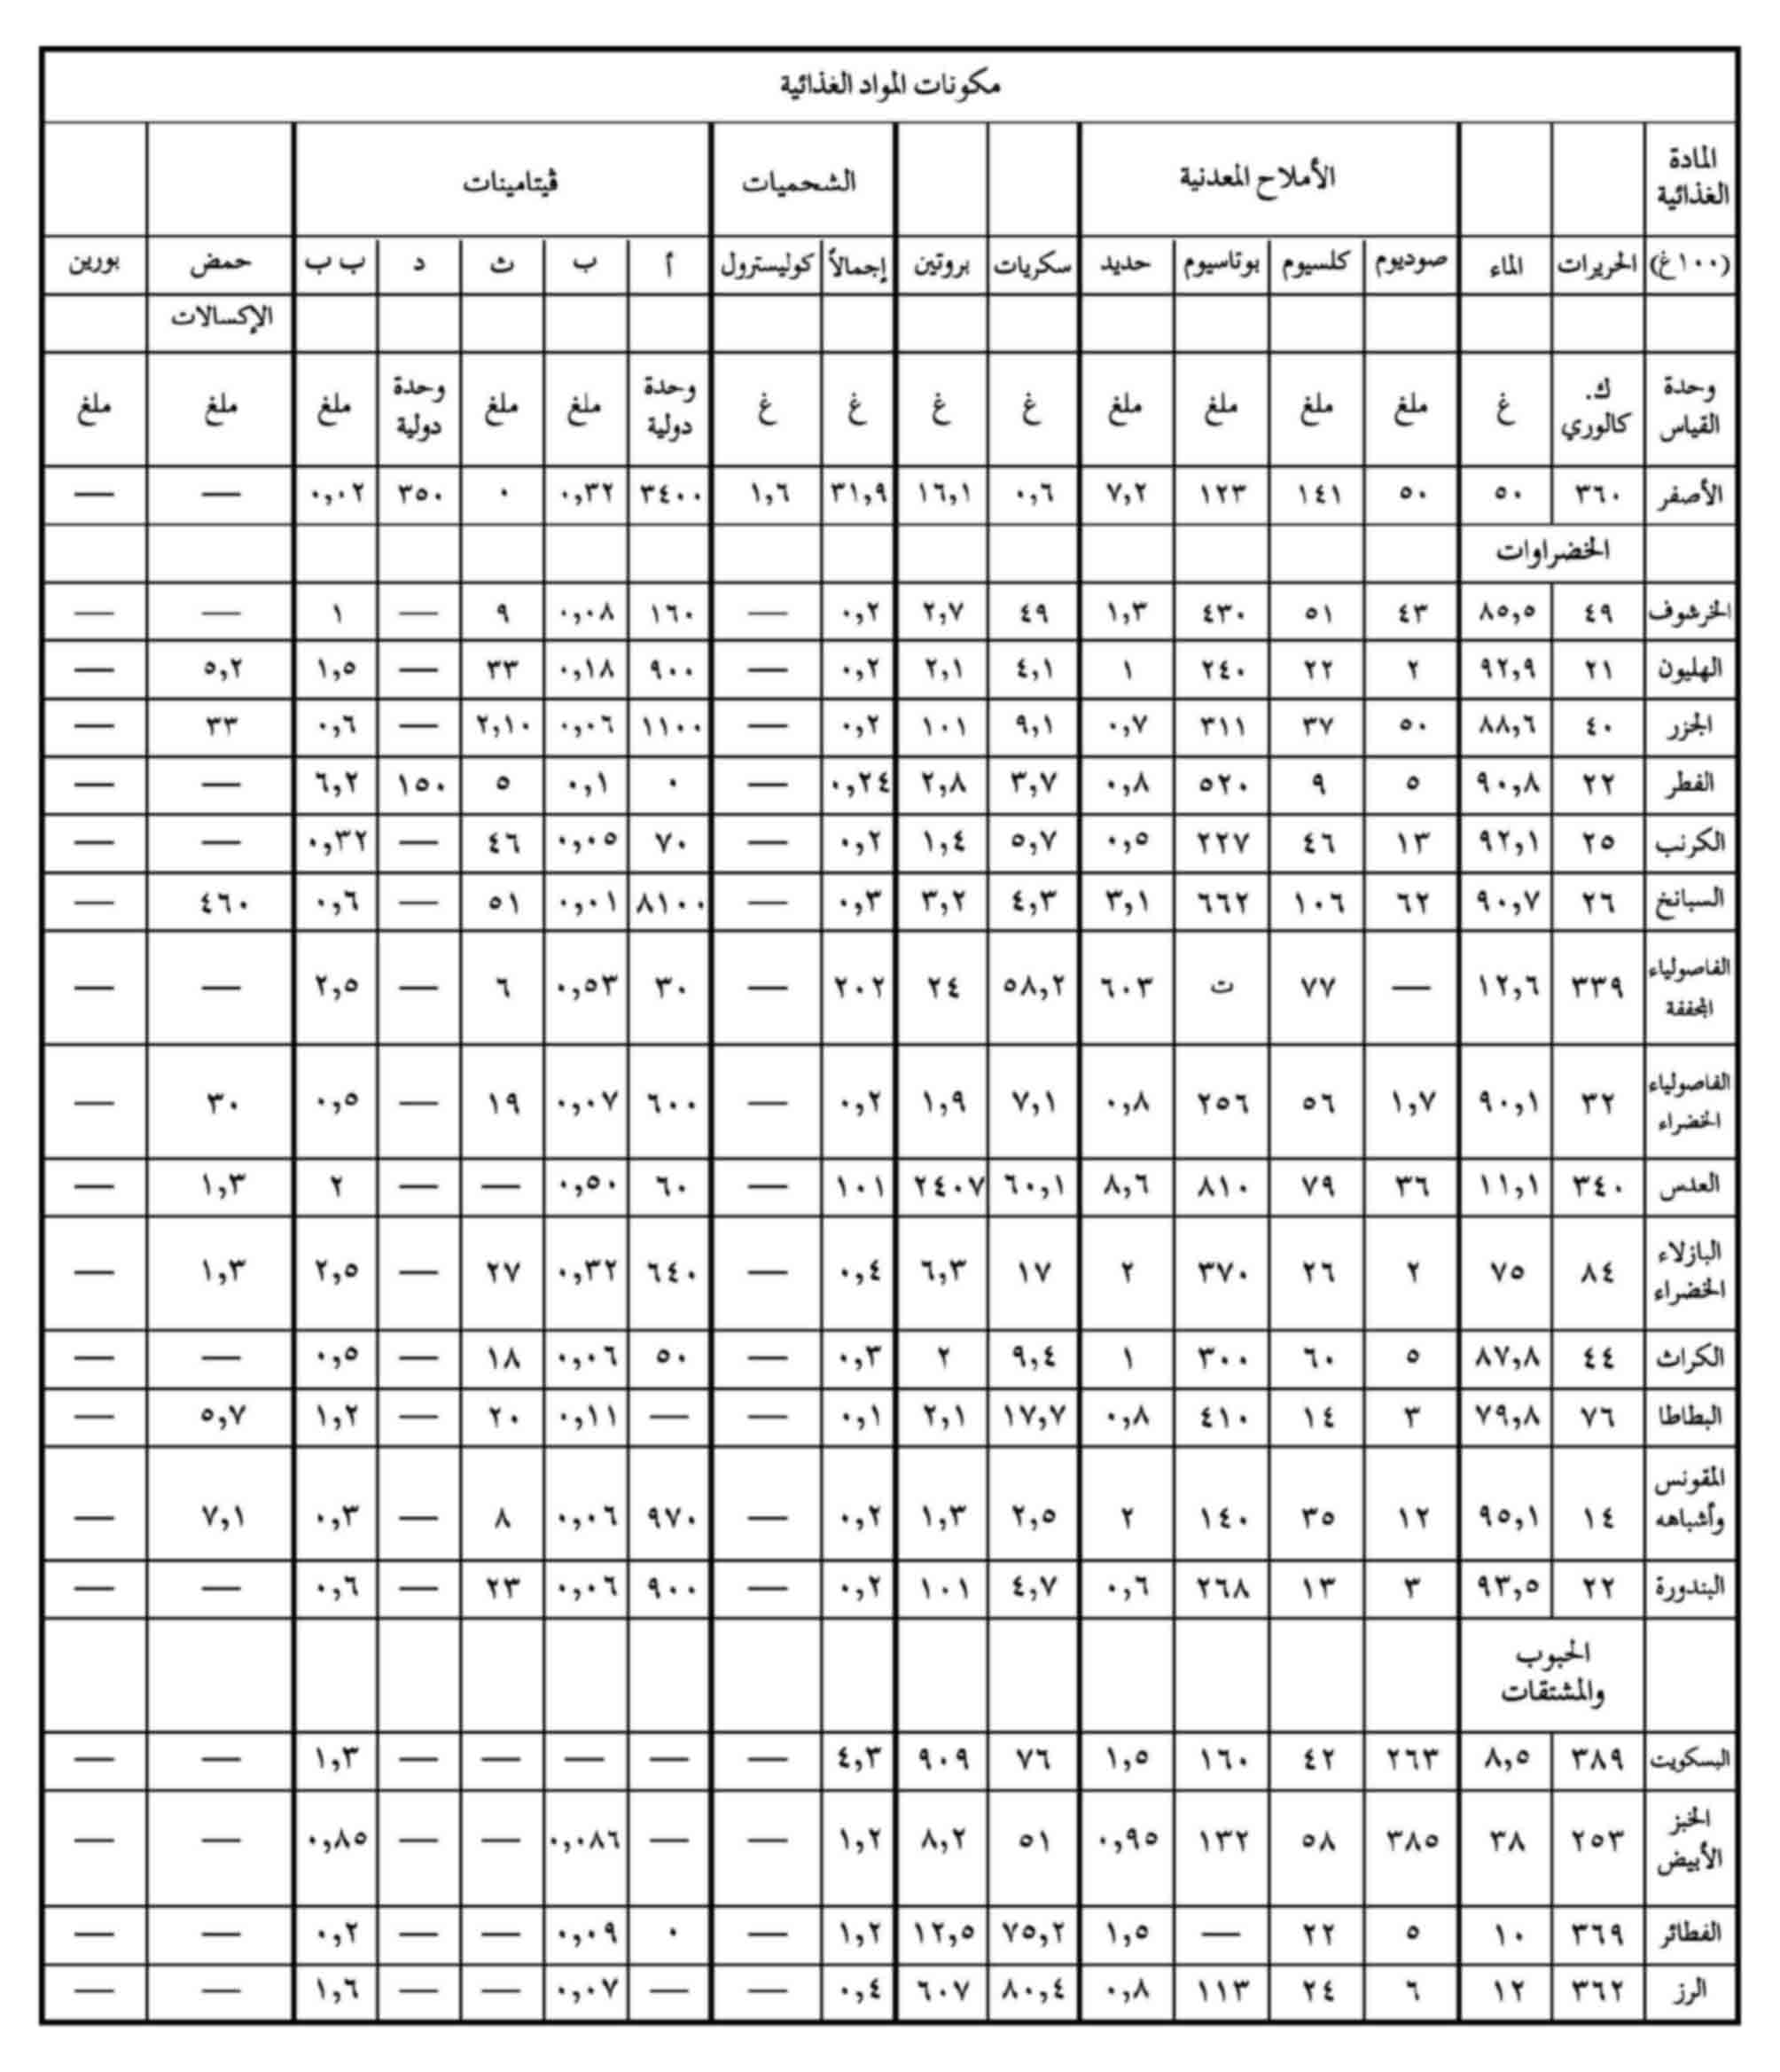 مكونات المواد الغذائية
المادة الغذائية الأملاح المعدنية الشحميات ڤيتامينات
(١٠٠غ) الحريرات الماء صوديوم كلسيوم بوتاسيوم حديد سكريات بروتين إجمالاً كوليسترول أ ب ث د ب ب حمض بورين
الإكسالات
وحدة القياس ك. كالوري غ ملغ ملغ ملغ ملغ غ غ غ غ وحدة دولية ملغ ملغ وحدة دولية ملغ ملغ ملغ
الأصفر ٣٦٠ ٥٠ ٥٠ ١٤١ ١٢٣ ٧,٢ ٠,٦ ١٦,١ ٣١,٩ ١,٦ ٣٤٠٠ ٠,٣٢ ٠ ٣٥٠ ٠,٠٢ — —
الخضراوات
الخرشوف ٤٩ ٨٥,٥ ٤٣ ٥١ ٤٣٠ ١,٣ ٤٩ ٢,٧ ٠,٢ — ١٦٠ ٠,٠٨ ٩ — ١ — —
الهليون ٢١ ٩٢,٩ ٢ ٢٢ ٢٤٠ ١ ٤,١ ٢,١ ٠,٢ — ٩٠٠ ٠,١٨ ٣٣ — ١,٥ ٥,٢ —
الجزر ٤٠ ٨٨,٦ ٥٠ ٣٧ ٣١١ ٠,٧ ٩,١ ١٠١ ٠,٢ — ١١٠٠ ٠,٠٦ ٢,١٠ — ٠,٦ ٣٣ —
الفطر ٢٢ ٩٠,٨ ٥ ٩ ٥٢٠ ٠,٨ ٣,٧ ٢,٨ ٠,٢٤ — ٠ ٠,١ ٥ ١٥٠ ٦,٢ — —
الكرنب ٢٥ ٩٢,١ ١٣ ٤٦ ٢٢٧ ٠,٥ ٥,٧ ١,٤ ٠,٢ — ٧٠ ٠,٠٥ ٤٦ — ٠,٣٢ — —
السبانخ ٢٦ ٩٠,٧ ٦٢ ١٠٦ ٦٦٢ ٣,١ ٤,٣ ٣,٢ ٠,٣ — ٨١٠٠ ٠,٠١ ٥١ — ٠,٦ ٤٦٠ —
الفاصولياء المجففة ٣٣٩ ١٢,٦ — ٧٧ ت ٦٠٣ ٥٨,٢ ٢٤ ٢٠٢ — ٣٠ ٠,٥٣ ٦ — ٢,٥ — —
الفاصولياء الخضراء ٣٢ ٩٠,١ ١,٧ ٥٦ ٢٥٦ ٠,٨ ٧,١ ١,٩ ٠,٢ — ٦٠٠ ٠,٠٧ ١٩ — ٠,٥ ٣٠ —
العدس ٣٤٠ ١١,١ ٣٦ ٧٩ ٨١٠ ٨,٦ ٦٠,١ ٢٤٠٧ ١٠١ — ٦٠ ٠,٥٠ — — ٢ ١,٣ —
البازلاء الخضراء ٨٤ ٧٥ ٢ ٢٦ ٣٧٠ ٢ ١٧ ٦,٣ ٠,٤ — ٦٤٠ ٠,٣٢ ٢٧ — ٢,٥ ١,٣ —
الكراث ٤٤ ٨٧,٨ ٥ ٦٠ ٣٠٠ ١ ٩,٤ ٢ ٠,٣ — ٥٠ ٠,٠٦ ١٨ — ٠,٥ — —
البطاطا ٧٦ ٧٩,٨ ٣ ١٤ ٤١٠ ٠,٨ ١٧,٧ ٢,١ ٠,١ — — ٠,١١ ٢٠ — ١,٢ ٥,٧ —
المقونس وأشباهه ١٤ ٩٥,١ ١٢ ٣٥ ١٤٠ ٢ ٢,٥ ١,٣ ٠,٢ — ٩٧٠ ٠,٠٦ ٨ — ٠,٣ ٧,١ —
البندورة ٢٢ ٩٣,٥ ٣ ١٣ ٢٦٨ ٠,٦ ٤,٧ ١٠١ ٠,٢ — ٩٠٠ ٠,٠٦ ٢٣ — ٠,٦ — —
الحبوب والمشتقات
البسكويت ٣٨٩ ٨,٥ ٢٦٣ ٤٢ ١٦٠ ١,٥ ٧٦ ٩٠٩ ٤,٣ — — — — — ١,٣ — —
الخبز الأبيض ٢٥٣ ٣٨ ٣٨٥ ٥٨ ١٣٢ ٠,٩٥ ٥١ ٨,٢ ١,٢ — — ٠,٠٨٦ — — ٠,٨٥ — —
الفطائر ٣٦٩ ١٠ ٥ ٢٢ — ١,٥ ٧٥,٢ ١٢,٥ ١,٢ — ٠ ٠,٠٩ — — ٠,٢ — —
الرز ٣٦٢ ١٢ ٦ ٢٤ ١١٣ ٠,٨ ٨٠,٤ ٦٠٧ ٠,٤ — — ٠,٠٧ — — ١,٦ — —